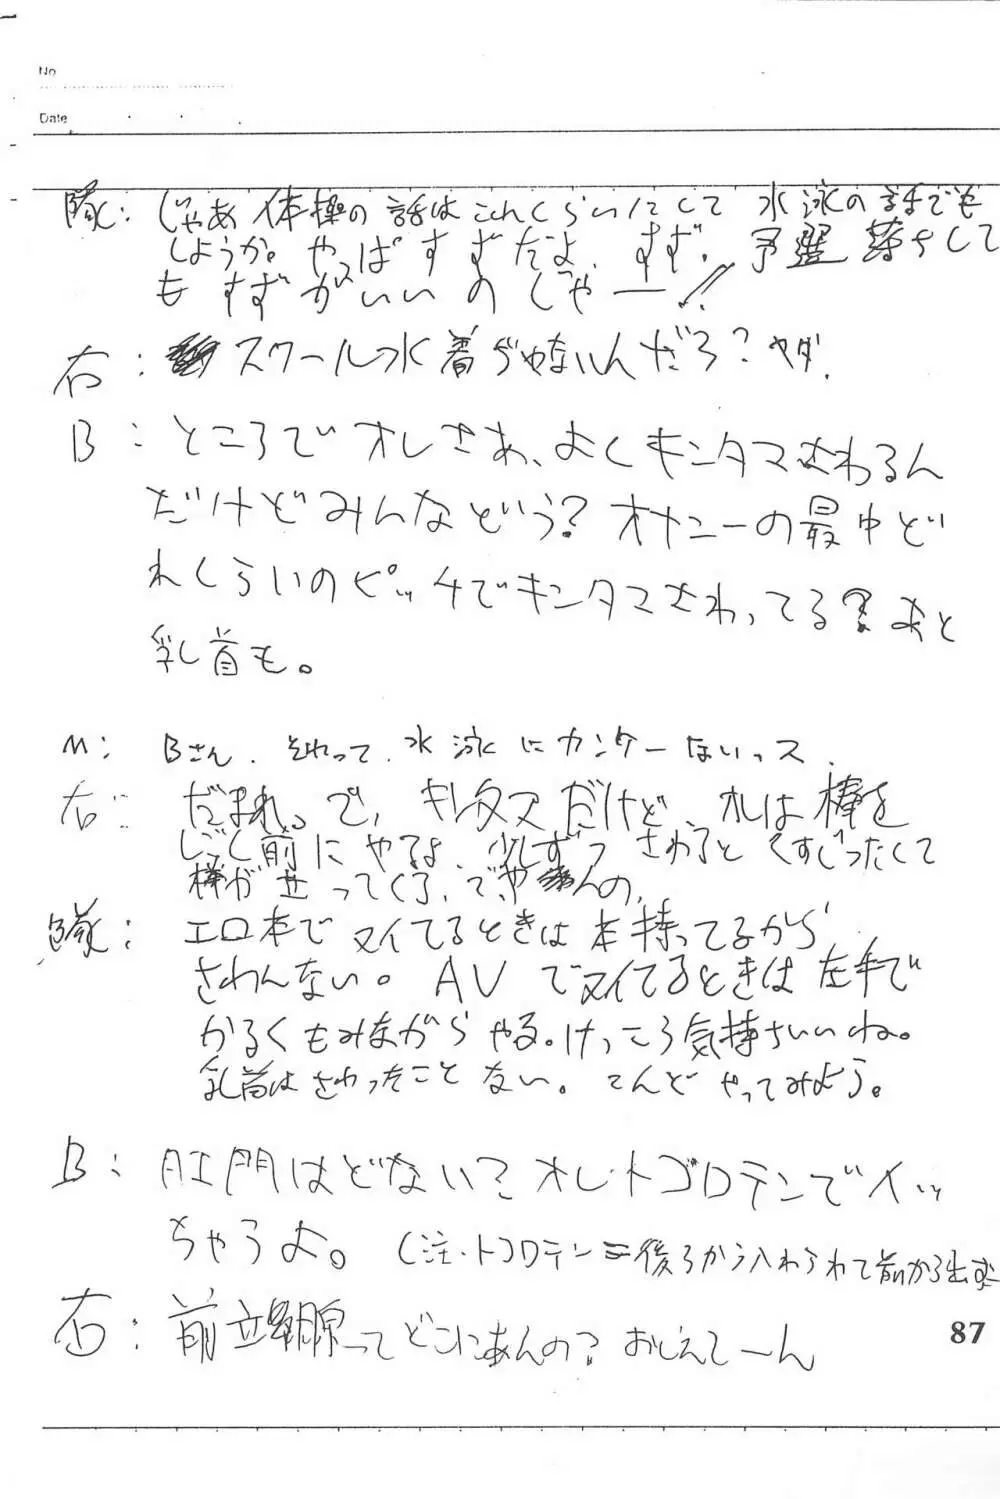 No
Date
隊: じゃあ体操の話はこれくらいにして 水泳の話でも
しようか。やっぱすずだよ、すず。予選落ちして
もすずがいいのじゃー!!
右: スクール水着ぢゃないんだろ？ヤダ.
B: ところでオレさあ、よくキンタマさわるん
だけどみんなどう？オナニーの最中ど
れくらいのピッチでキンタマさわってる？あと
乳首も。
M: Bさん、それって、水泳にカンケーないっス.
右: だまれ。で、キンタマだけど、オレは棒を
しごく前にやるよ、少しずつさわるとくすぐったくて
棒が せってくる、で
隊: エロ本でヌイてるときは本持ってるから
さわんない。AVでヌイてるときは左手で
かるくもみながらやる。けっこう気持ちいいね。
乳首はさわったことない。こんどやってみよう。
B: 肛門はどないて？オレ、トコロテンでイッ
ちゃうよ。(注・トコロテン=後ろから入れられて前から出す
右: 前立腺ってどこにあんの？おしえてーん
87